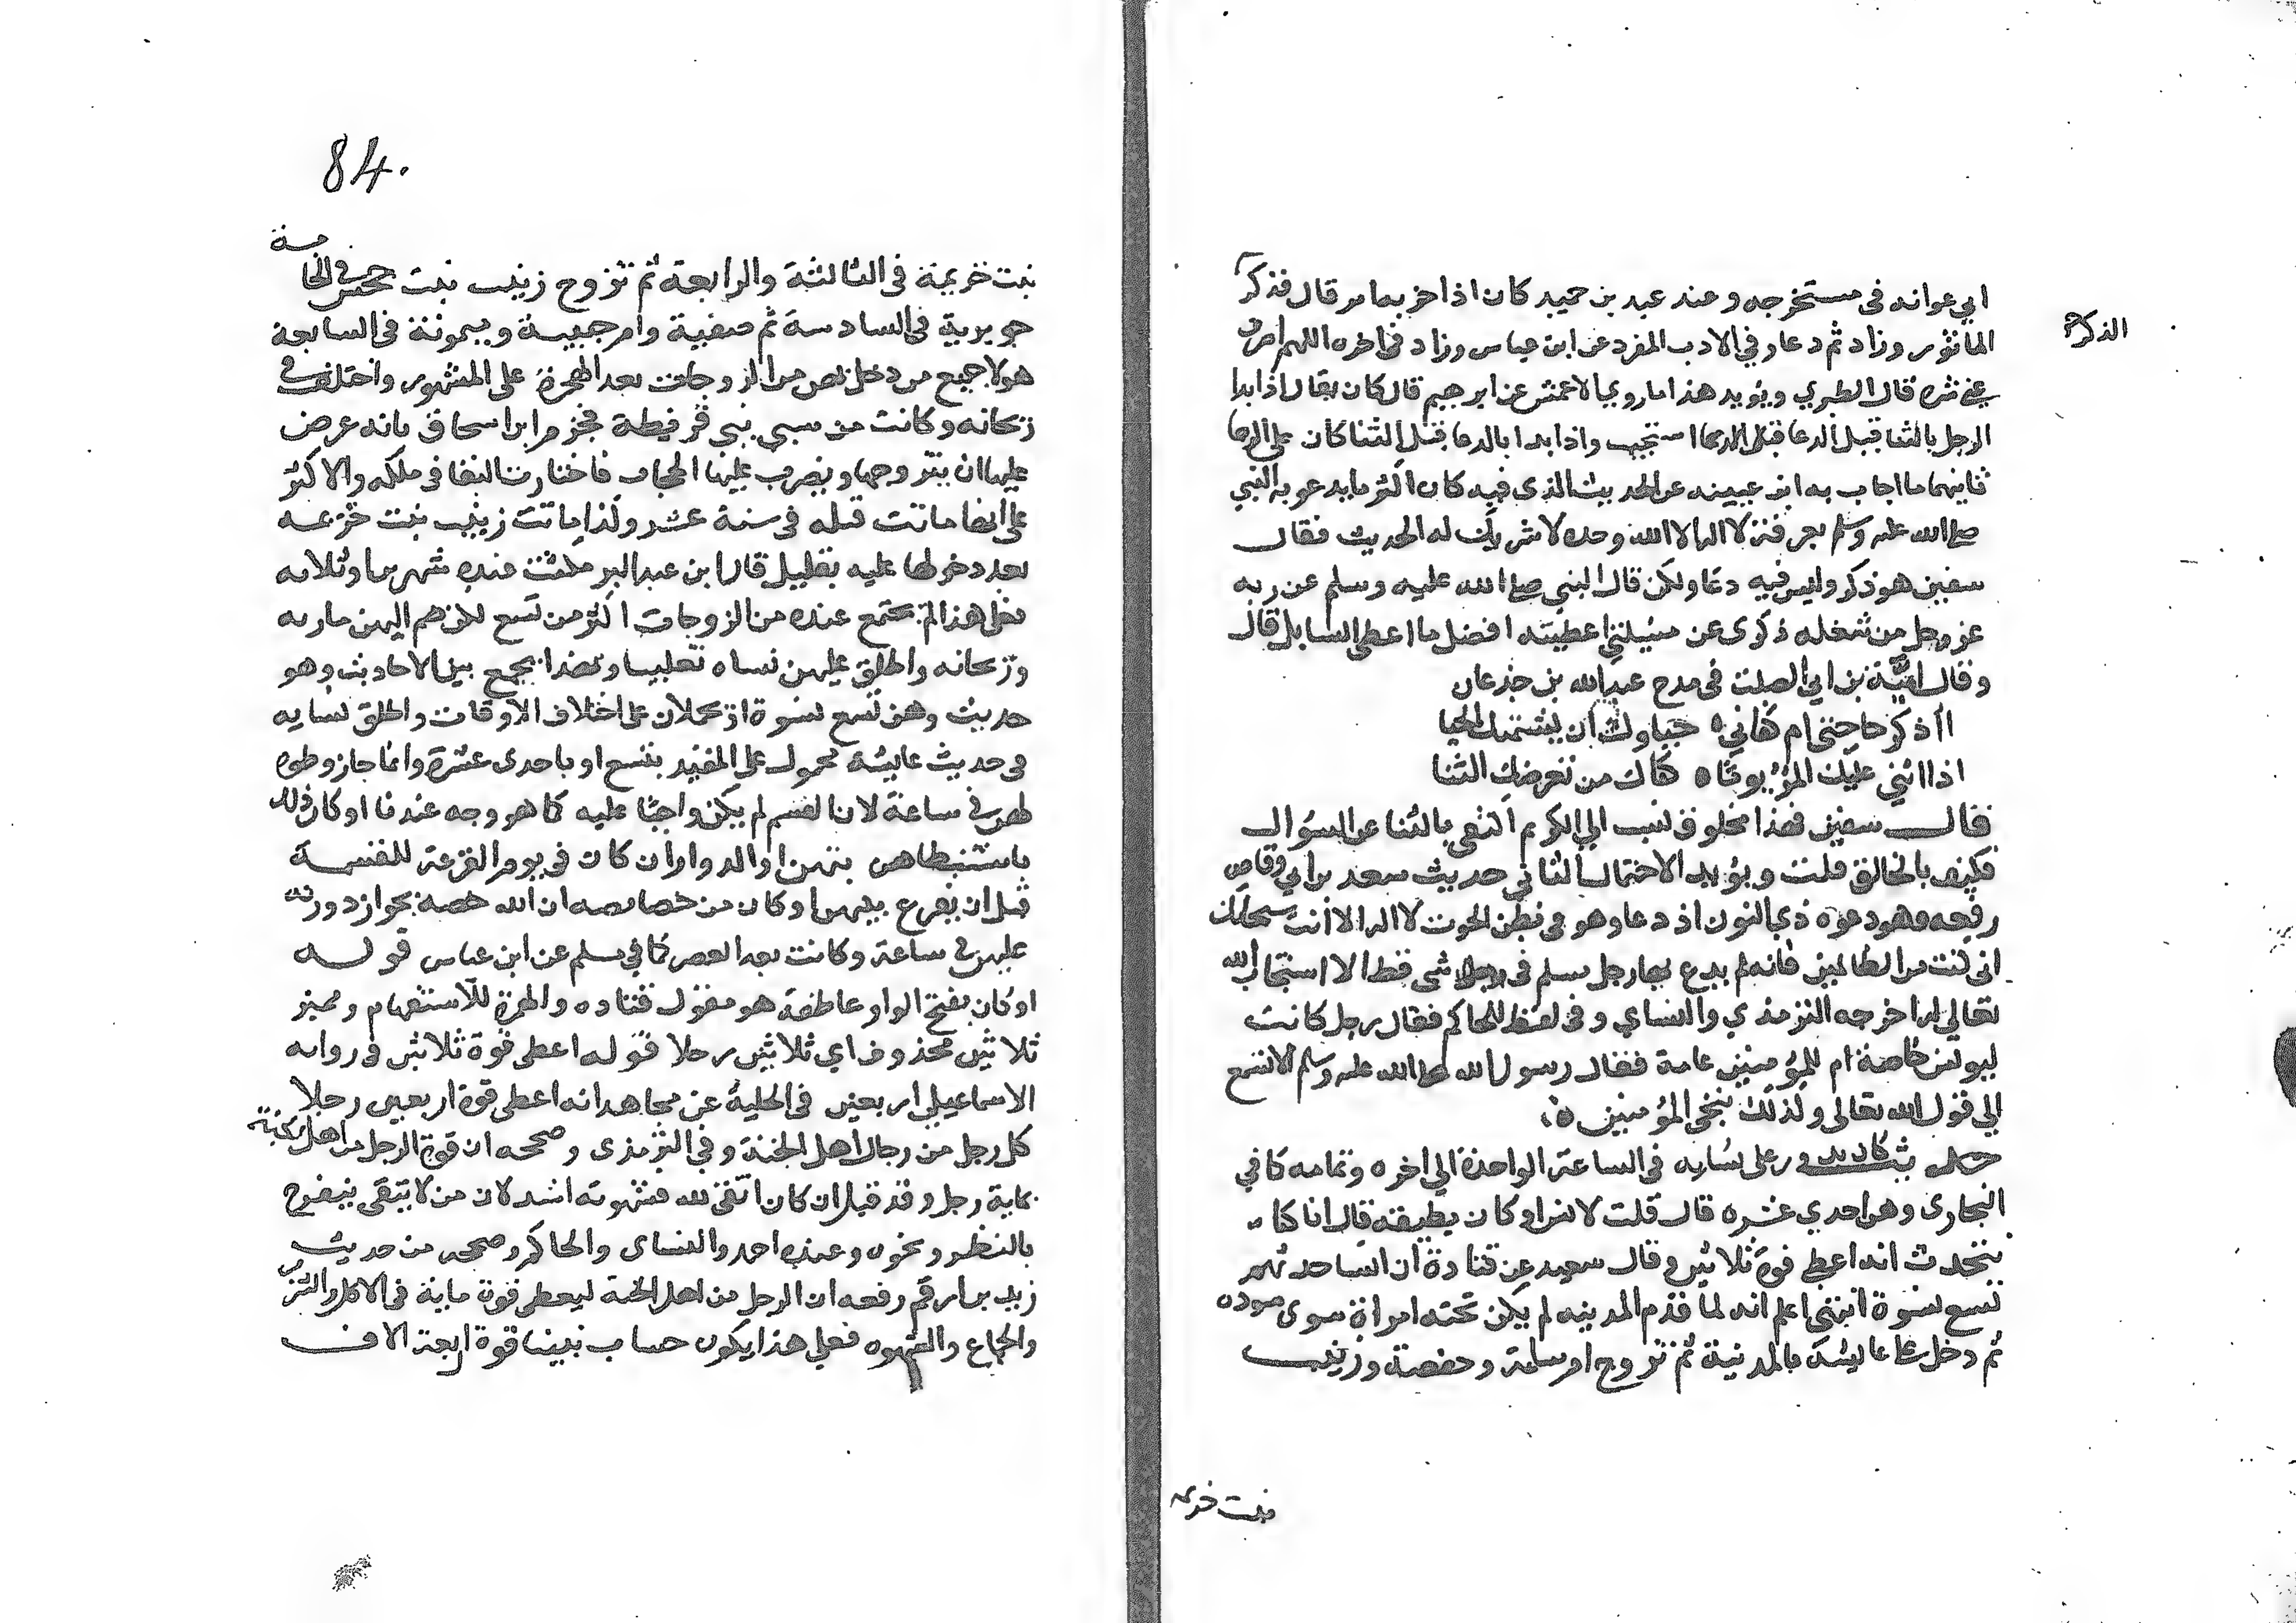 ابي عوانه في مستخرجه وعند عبد بن حميد كان اذا حزبه امر قال فذكر
الذكر
الماثور وزاد ثم دعا وفي الادب المفرد عن ابن عباس وزاد في اخره اللهم اصرف
عني شره قال الطبري ويؤيد هذا ما روي الاعمش عن ابرهيم قال كان يقال اذا بدا
الرجل بالثنا قبل الدعا استجيب واذا بدا بالدعا قبل الثنا كان على الرجا
ثانيهما ما اجاب به ابن عيينه عن الحديث الذي فيه كان اكثر ما يدعو به النبي
صلى الله عليه وسلم بعرفة لا اله الا الله وحده لا شريك له الحديث فقال
سفين هو ذكر وليس فيه دعا ولكن قال النبي صلى الله عليه وسلم عن ربه
عز وجل من شغله ذكرى عن مسئلتي اعطيته افضل ما اعطى السايل قال
وقال امية بن ابي الصلت في مدح عبد الله بن جذعان
أأذكر حاجتي ام
اذا اثني عليك المرؤ يوما ه كفاك من تعرضك الثنا
فقال سفين فهذا مخلوق نسب الي الكرم اكتفى بالثنا عن السؤال
فكيف بالخالق قلت ويؤيد الاحتمال الثاني حديث سعد بن ابي وقاص
رفعه وهو دعوه ذي النون اذ دعا وهو في بطن الحوت لا اله الا انت سبحانك
اني كنت من الظالمين فانه لم يدع بها رجل مسلم في شى قط الا استجاب الله
تعالي له اخرجه الترمذي والنساي وفي لفظ للحاكم فقال رجل كانت
ليونس خاصة ام للمؤمنين عامة فقال رسول الله صلى الله عليه وسلم الا تسمع
الي قول الله تعالى وكذلك ننجي المؤمنين ه
حديث كان يدور على نسايه في الساعة الواحدة الي اخره وتمامه كما في
البخاري وهن احدي عشره قال قلت لانس او كان يطيقه قال انا كنا
نتحدث انه اعطي قوة ثلاثين وقال سعيد عن قتادة ان انسا حدثهم
تسع نسوة انتهى اعلم انه لما قدم المدينه لم يكن تحته امراة سوى سوده
ثم دخل على عايشة بالمدينة ثم تزوج ام سلمة وحفصة وزينب
بنت خزيمه
84
بنت خزيمة في الثالثة والرابعة ثم تزوج زينب بنت جحش في الخامسة
جويرية في السادسة ثم صفية وام حبيبة وميمونة في السابعة
هولا جميع من دخل بهن من الزوجات بعد الهجرة على المشهور واختلف في
ريحانه وكانت من سبي بني قريظة فجزم ابن اسحاق بانه عرض
عليها ان يتزوجها ويضرب عليها الحجاب فاختارت البقا في ملكه والاكثر
على انها ماتت قبله في سنة عشر وكذا ماتت زينب بنت خزيمه
بعد دخولها عليه بقليل قال ابن عبد البر مكثت عنده شهرين او ثلاثه
فعلى هذا لم يجتمع عنده من الزوجات اكثر من تسع لكن ضم اليهن ماريه
وريحانه واطلق عليهن نساه تغليبا وبهذا يجمع بين الاحاديث وهو
حديث وهن تسع نسوة او يحملان على اختلاف الاوقات واطلق نسايه
في حديث عايشة محمول على المقيد بتسع او باحدى عشرة وانما جاز وطوه
لهن في ساعة لان القسم لم يكن واجبا عليه كما هو وجه عندنا او كان ذلك
باستطابهن او الدوران كان في يوم القرعة للقسمة
قبل ان يقرع بينهن او كان من خصايصه ان الله خصه بجواز دورته
عليهن في ساعة وكانت بعد العصر كما في مسلم عن ابن عباس قوله
او كان بفتح الواو عاطفة هو مقول قتاده والهمزة للاستفهام ومميز
ثلاثين محذوف اي ثلاثين رجلا قوله اعطي قوة ثلاثين في روايه
الاسماعيلي اربعين في الحلية عن مجاهد انه اعطى قوة اربعين رجلا
كل رجل من رجال اهل الجنة وفي الترمذي وصححه ان قوة الرجل من اهل الجنة
بماية رجل وقد قيل ان كان اتقى لله فشهوته اشد لان من لا يتقي يتفرج
بالنظر ونحوه وعنده احمد والنساي والحاكم وصححه من حديث
زيد بن ارقم رفعه ان الرجل من اهل الجنة ليعطى قوة ماية في الاكل والشرب
والجماع والشهوه فعلي هذا يكون حساب نبينا قوة اربعة الاف